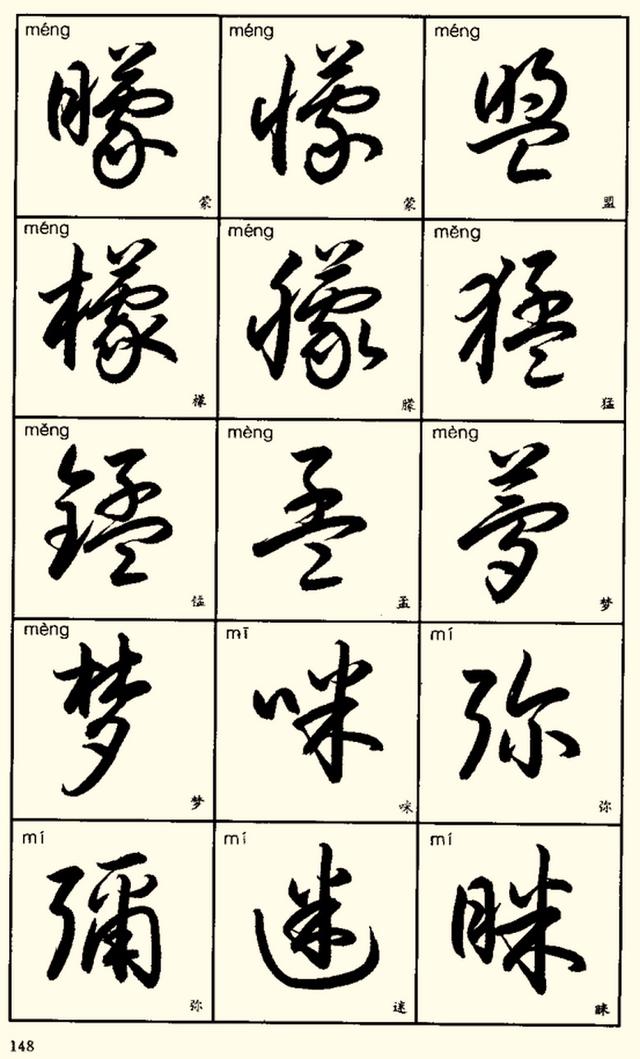 méng méng méng
矇 懞 盟
蒙 蒙 盟
méng méng měng
檬 朦 猛
檬 朦 猛
měng mèng mèng
錳 孟 夢
锰 孟 梦
mèng mī mí
梦 咪 弥
梦 咪 弥
mí mí mí
彌 迷 眯
弥 迷 眯
148